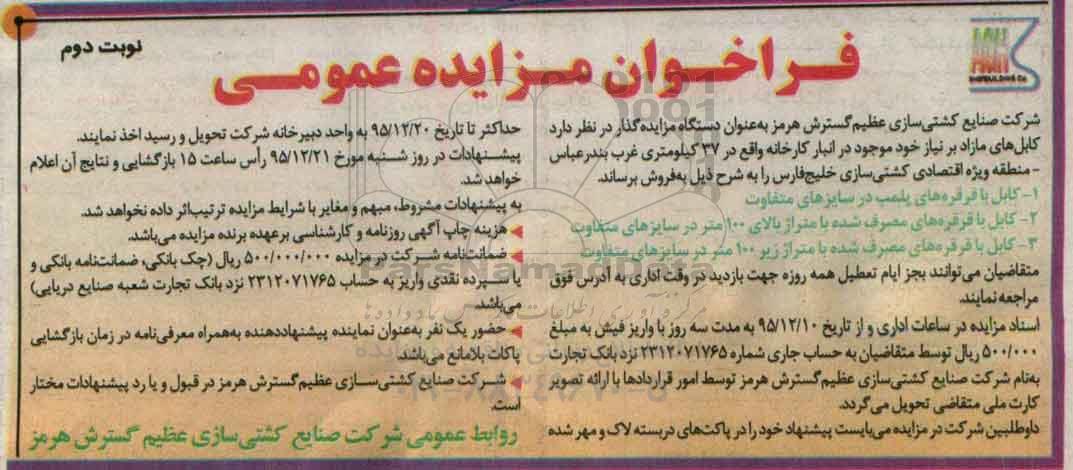 نوبت دوم
فراخوان مزایده عمومی
SHIPBUILDING Co
شرکت صنایع کشتی‌سازی عظیم گسترش هرمز به‌عنوان دستگاه مزایده‌گذار در نظر دارد
کابل‌های مازاد بر نیاز خود موجود در انبار کارخانه واقع در ۳۷ کیلومتری غرب بندرعباس
- منطقه ویژه اقتصادی کشتی‌سازی خلیج‌فارس را به شرح ذیل به‌فروش برساند.
۱- کابل با قرقره‌های پلمب در سایزهای متفاوت
۲- کابل با قرقره‌های مصرف شده با متراژ بالای ۱۰۰ متر در سایزهای متفاوت
۳- کابل با قرقره‌های مصرف شده با متراژ زیر ۱۰۰ متر در سایزهای متفاوت
متقاضیان می‌توانند بجز ایام تعطیل همه روزه جهت بازدید در وقت اداری به آدرس فوق
مراجعه نمایند.
اسناد مزایده در ساعات اداری و از تاریخ ۹۵/۱۲/۱۰ به مدت سه روز با واریز فیش به مبلغ
۵۰۰/۰۰۰ ریال توسط متقاضیان به حساب جاری شماره ۲۳۱۲۰۷۱۷۶۵ نزد بانک تجارت
به‌نام شرکت صنایع کشتی‌سازی عظیم گسترش هرمز توسط امور قراردادها با ارائه تصویر
کارت ملی متقاضی تحویل می‌گردد.
داوطلبین شرکت در مزایده می‌بایست پیشنهاد خود را در پاکت‌های دربسته لاک و مهر شده
حداکثر تا تاریخ ۹۵/۱۲/۲۰ به واحد دبیرخانه شرکت تحویل و رسید اخذ نمایند.
پیشنهادات در روز شنبه مورخ ۹۵/۱۲/۲۱ رأس ساعت ۱۵ بازگشایی و نتایج آن اعلام
خواهد شد.
به پیشنهادات مشروط، مبهم و مغایر با شرایط مزایده ترتیب‌اثر داده نخواهد شد.
هزینه چاپ آگهی روزنامه و کارشناسی برعهده برنده مزایده می‌باشد.
ضمانت‌نامه شرکت در مزایده ۵۰۰/۰۰۰/۰۰۰ ریال (چک بانکی، ضمانت‌نامه بانکی و
یا سپرده نقدی واریز به حساب ۲۳۱۲۰۷۱۷۶۵ نزد بانک تجارت شعبه صنایع دریایی)
می‌باشد.
حضور یک نفر به‌عنوان نماینده پیشنهاددهنده به‌همراه معرفی‌نامه در زمان بازگشایی
پاکات بلامانع می‌باشد.
شرکت صنایع کشتی‌سازی عظیم گسترش هرمز در قبول و یا رد پیشنهادات مختار
است.
روابط عمومی شرکت صنایع کشتی‌سازی عظیم گسترش هرمز